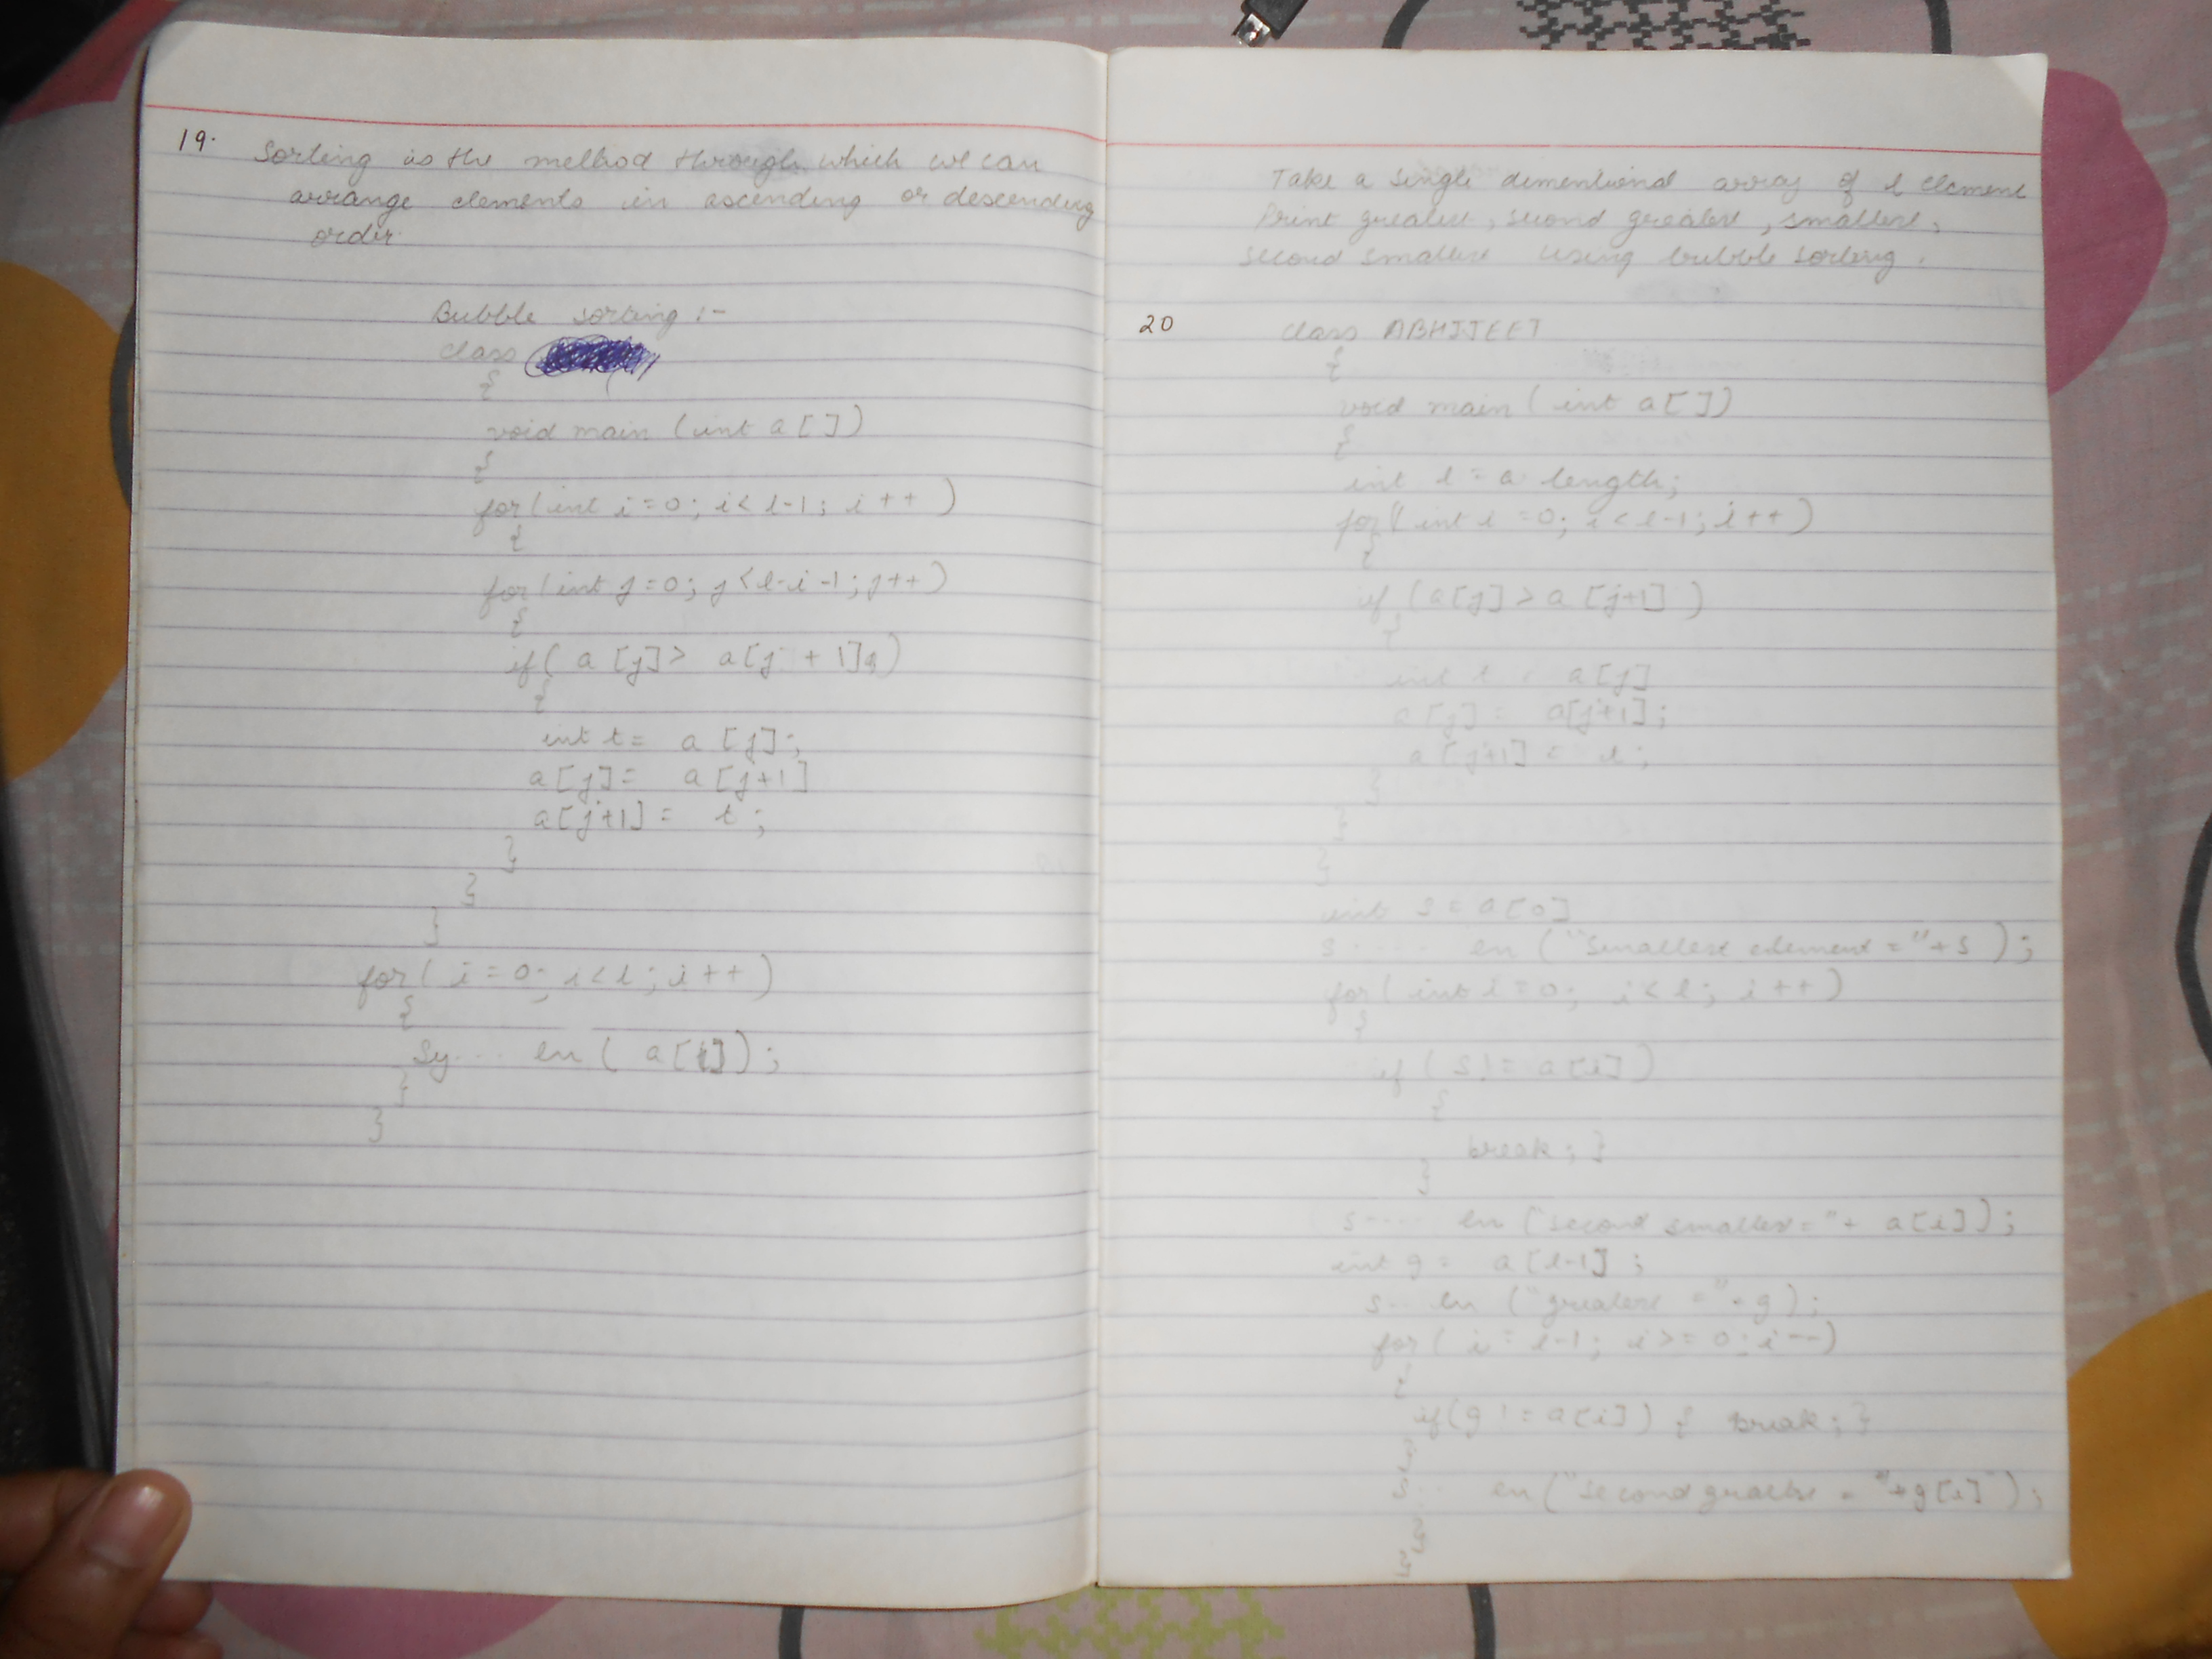 19.
Sorting is the method through which we can
arrange elements in ascending or descending
order.
Bubble sorting :-
class
{
void main (int a [ ])
{
for(int i = 0; i < l-1; i ++ )
{
for(int j = 0; j < l-i-1; j++)
{
if( a [j] > a[j + 1])
{
int t = a [j];
a[j] = a [j+1]
a[j+1] = t ;
}
}
}
for( i = 0; i < l ; i ++ )
{
Sy... ln ( a[i]);
}
}
Take a single dimentional array of l element
Print greatest, second greatest, smallest,
second smallest using bubble sorting.
20
class ABHIJEET
{
void main ( int a [ ])
{
int l = a length;
for( int i = 0; i < l-1; i++ )
{
if (a[j] > a [j+1] )
{
int t = a[j]
a [j] = a[j+1];
a [j+1] = t ;
}
}
}
int s = a[0]
s..... ln ("Smallest element = "+s );
for( int i = 0; i < l; i ++ )
{
if ( s! = a[i])
{
break ; }
}
s.... ln ("second smallest = "+ a[i]);
int g = a [l-1] ;
s.. ln ("greatest = "+ g );
for( i = l-1; i >= 0; i --)
{
if(g ! = a[i]) { break ; }
}
s... ln("Second greatest = "+g[i]");
}
}